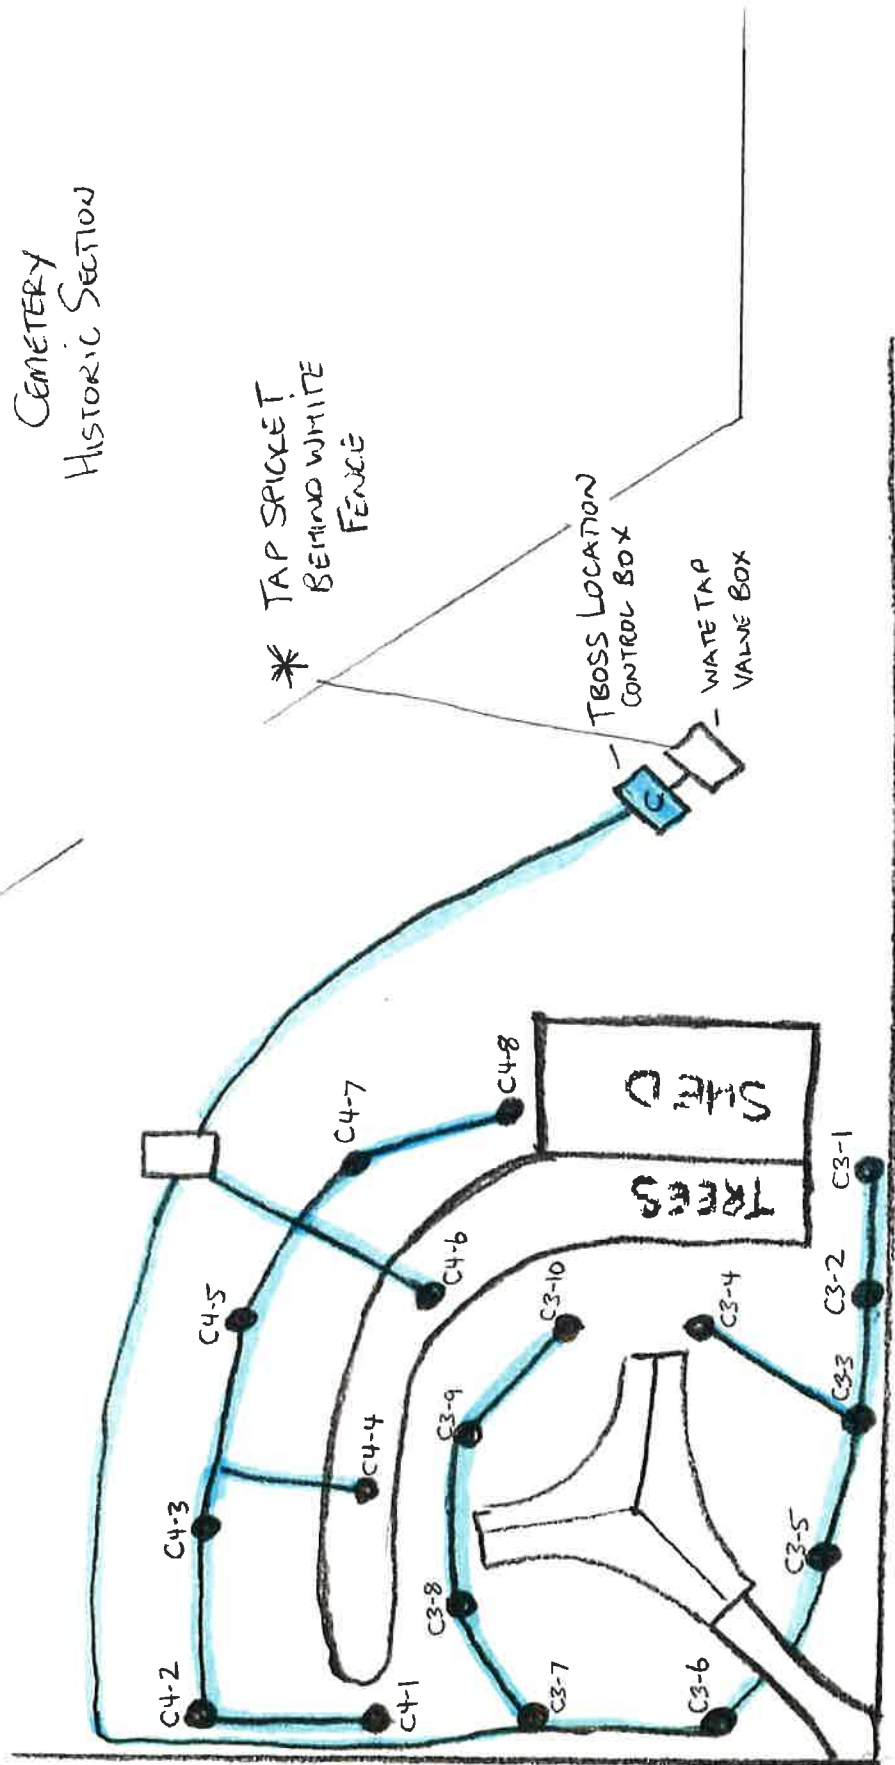 CEMETERY
HISTORIC SECTION
* TAP SPICKET
BEHIND WHITE
FENCE
TBOSS LOCATION
CONTROL BOX
WATE TAP
VALVE BOX
C
SHED
TREES
C4-8
C4-7
C4-6
C4-5
C4-4
C4-3
C4-2
C4-1
C3-10
C3-9
C3-8
C3-7
C3-6
C3-5
C3-4
C3-3
C3-2
C3-1